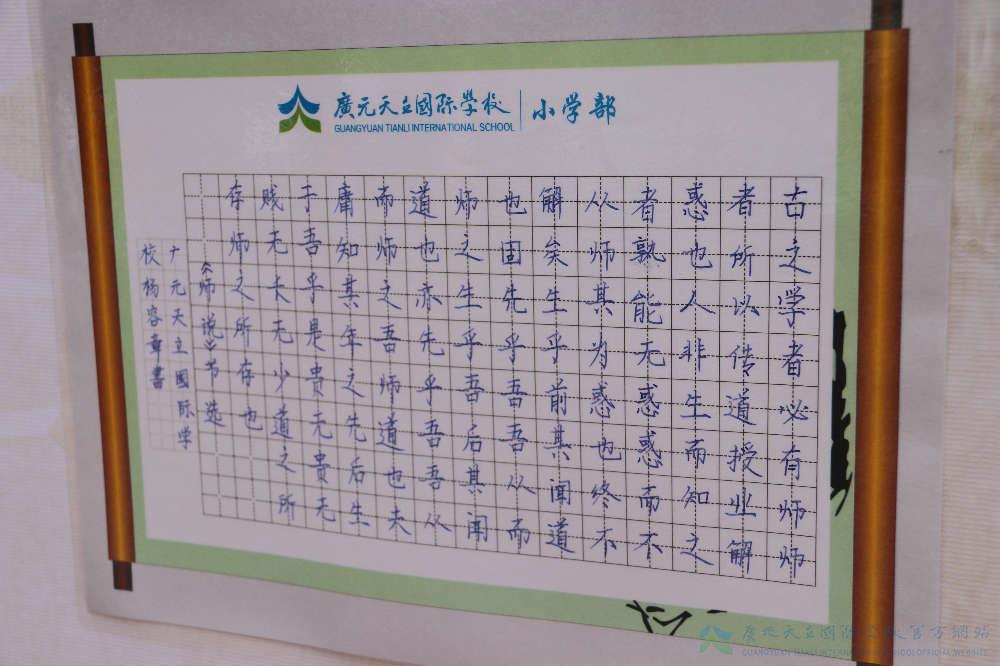 廣元天立國際學校 小学部
GUANGYUAN TIANLI INTERNATIONAL SCHOOL
古之学者必有师师
者所以传道授业解
惑也人非生而知之
者熟能无惑惑而不
从师其为惑也终不
解矣生乎前其闻道
也固先乎吾吾从而
师之生乎吾后其闻
道也亦先乎吾吾从
而师之吾师道也夫
庸知其年之先后生
于吾乎是贵无贵无
贱无长无少道之所
存师之所存也
《师说》节选
广元天立國际学
校杨容章書
廣元天立國際學校官方網站
GUANGYUAN TIANLI INTERNATIONAL SCHOOL OFFICIAL WEBSITE